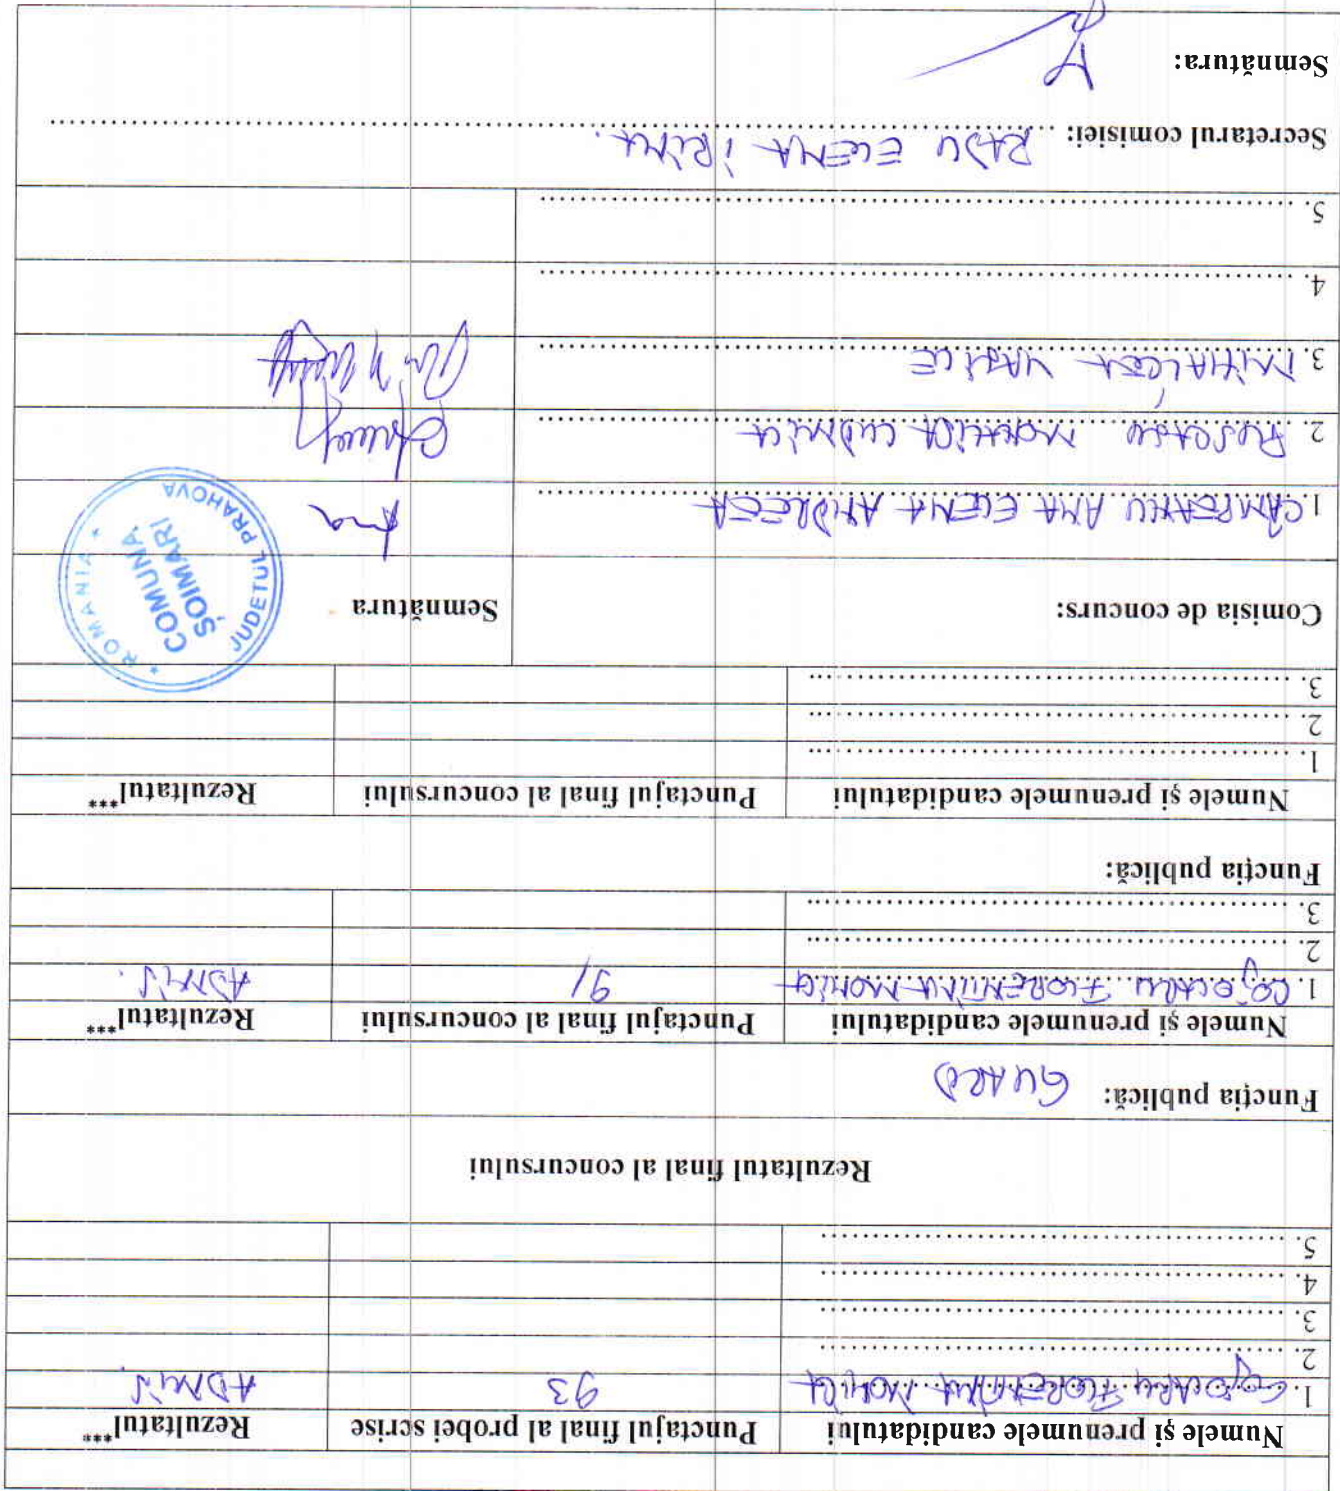 Numele și prenumele candidatului Punctajul final al probei scrise Rezultatul***
1. COJOCARU FLORENTINA MONICA 93 ADMIS
2. ....................
3. ....................
4. ....................
5. ....................
Rezultatul final al concursului
Funcția publică: GUARD
Numele și prenumele candidatului Punctajul final al concursului Rezultatul***
1. COJOCARU FLORENTINA MONICA 91 ADMIS.
2. ....................
3. ....................
Funcția publică:
Numele și prenumele candidatului Punctajul final al concursului Rezultatul***
1. ....................
2. ....................
3. ....................
Comisia de concurs: Semnătura
ROMANIA
JUDEȚUL PRAHOVA
COMUNA
ȘOIMARI
1. CÂMPEANU ANA ELENA ANDREEA Ana
2. MIHAELA LUDMILA
3. MIHALCEA VASILE
4. ....................
5. ....................
Secretarul comisiei: RADU ELENA IRINA.
Semnătura: